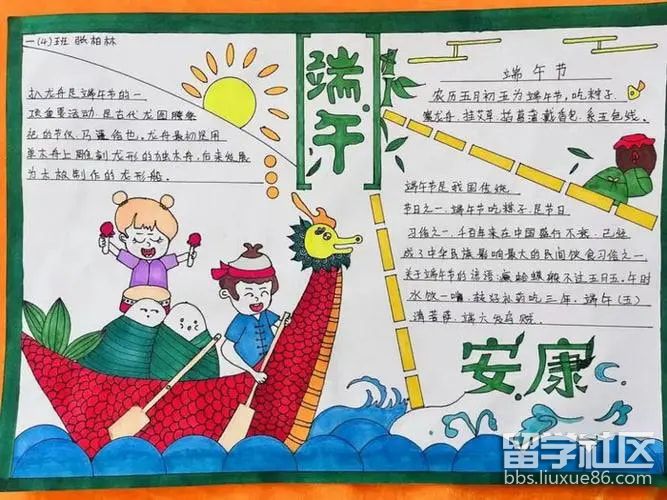 一(4)班 张柏林
扒龙舟是端午节的一
项重要活动,是古代龙图腾祭
祀的节仪,乃遗俗也。龙舟最初是用
单木舟上雕刻龙形的独木舟,后来发展
为木板制作的龙形船。
端午
端午节
农历五月初五为端午节,吃粽子
赛龙舟,挂艾草、插菖蒲戴香包,系五色线。
端午节是我国传统
节日之一,端午节吃粽子是节日
习俗之一,千百年来在中国盛行不衰,已经
成了中华民族影响最大的民间饮食习俗之一
关于端午节的谚语:癞蛤蟆躲不过五月五,午时
水饮一嘴,较好补药吃三年,端午(五)
请菩萨,端六发乌贼。
安康
留学社区
bbs.liuxue86.com